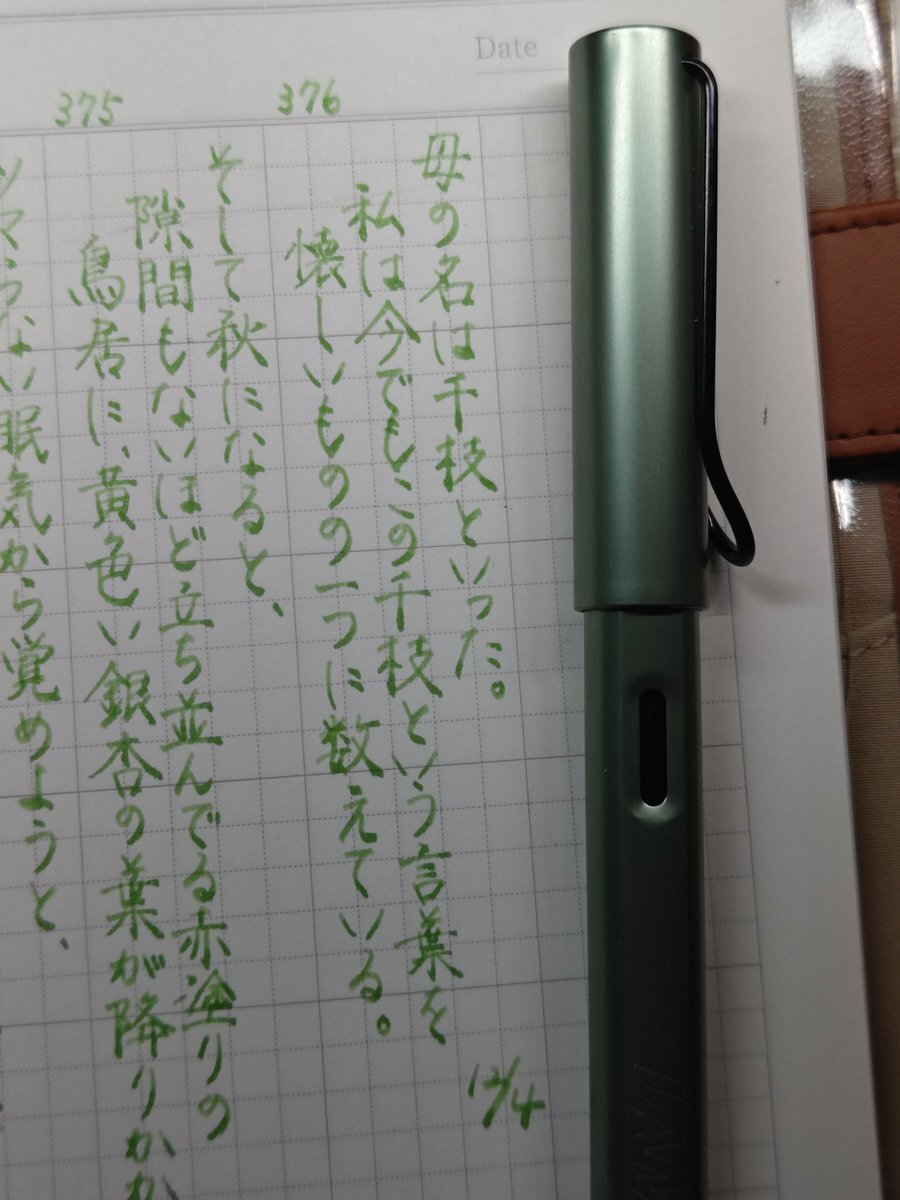 Date
376
母の名は千枝といった。
私は今でもこの千枝という言葉を
懐しいものの一つに数えている。
12/4
375
そして秋になると、
隙間もないほど立ち並んでる赤塗りの
鳥居に、黄色い銀杏の葉が降りかか
らない眠気から覚めようと、
LAM